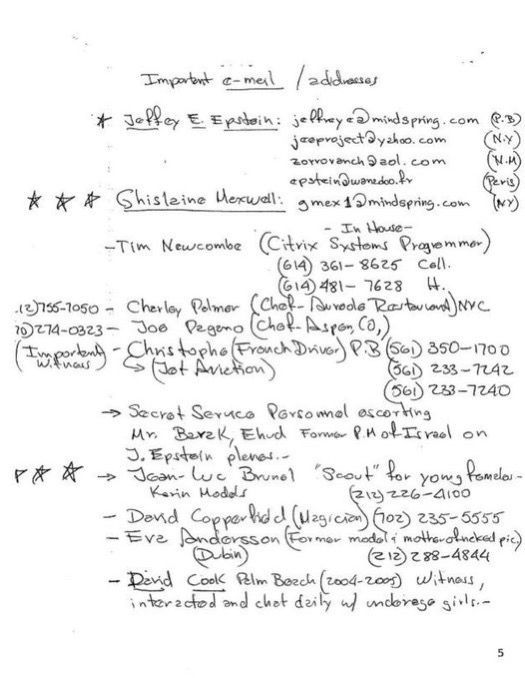 Important e-mail / addresses
* Jeffrey E. Epstein: jeffreye@mindspring.com (P.B)
jeeproject@yahoo.com (N.Y)
zorroranch@aol.com (N.M)
epstein@wanadoo.fr (Paris)
* * * Ghislaine Maxwell: gmax1@mindspring.com (NY)
- In House -
- Tim Newcombe (Citrix Systems Programmer)
(614) 361-8625 Cell.
(614) 481-7628 H.
.12)755-7050 - Charley Palmer (Chef - Aureole Restaurant) NYC
70)274-0323 - Joe Pagano (Chef - Aspen, CO,)
(Important Witness) - Christophe (French Driver) P.B (561) 350-1700
→ (Jet Aviction) (561) 233-7242
(561) 233-7240
→ Secret Service Personnel escorting
Mr. Barak, Ehud Former P.M of Israel on
J. Epstein planes.-
* * * → Jean-Luc Brunel "Scout" for young females-
Karin Models (212) 226-4100
- David Copperfield (Magician) (702) 235-5555
- Eva Andersson (Former model & mother of naked pic)
(Dubin) (212) 288-4844
- David Cook Palm Beach (2004-2005) Witness,
interacted and chat daily w/ underage girls.-
5